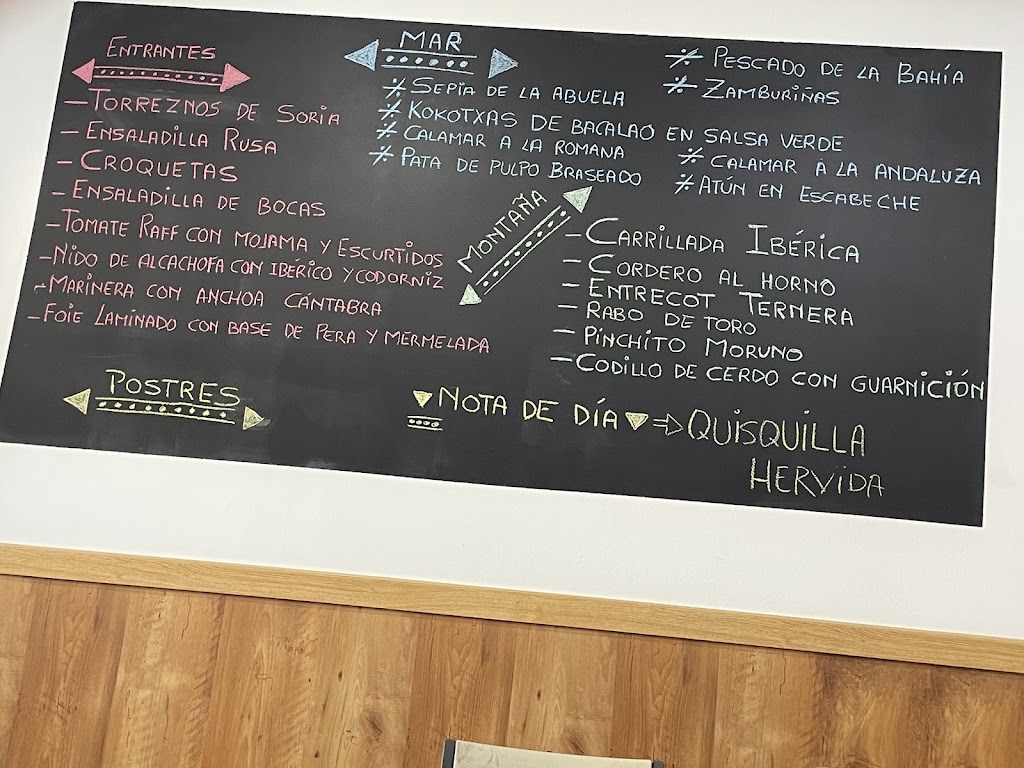 ENTRANTES
- TORREZNOS DE SORIA
- ENSALADILLA RUSA
- CROQUETAS
- ENSALADILLA DE BOCAS
- TOMATE RAFF CON MOJAMA Y ESCURTIDOS
- NIDO DE ALCACHOFA CON IBÉRICO Y CODORNIZ
- MARINERA CON ANCHOA CÁNTABRA
- FOIE LAMINADO CON BASE DE PERA Y MERMELADA
MAR
% SEPIA DE LA ABUELA
% KOKOTXAS DE BACALAO EN SALSA VERDE
% CALAMAR A LA ROMANA
% PATA DE PULPO BRASEADO
% PESCADO DE LA BAHÍA
% ZAMBURIÑAS
% CALAMAR A LA ANDALUZA
% ATÚN EN ESCABECHE
MONTAÑA
- CARRILLADA IBÉRICA
- CORDERO AL HORNO
- ENTRECOT TERNERA
- RABO DE TORO
- PINCHITO MORUNO
- CODILLO DE CERDO CON GUARNICIÓN
POSTRES
NOTA DE DÍA ⇒ QUISQUILLA
HERVIDA